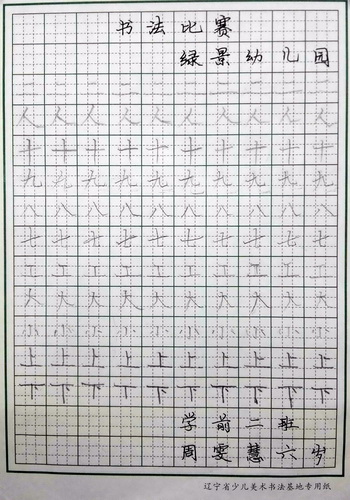 书法比赛
绿景幼儿园
二二二二二二二二二二
人人人人人人人人人人
十十十十十十十十十十
九九九九九九九九九九
八八八八八八八八八八
七七七七七七七七七七
工工工工工工工工工工
大大大大大大大大大大
小小小小小小小小小小
上上上上上上上上上上
下下下下下下下下下下
学前二班
周雯慧六岁
辽宁省少儿美术书法基地专用纸